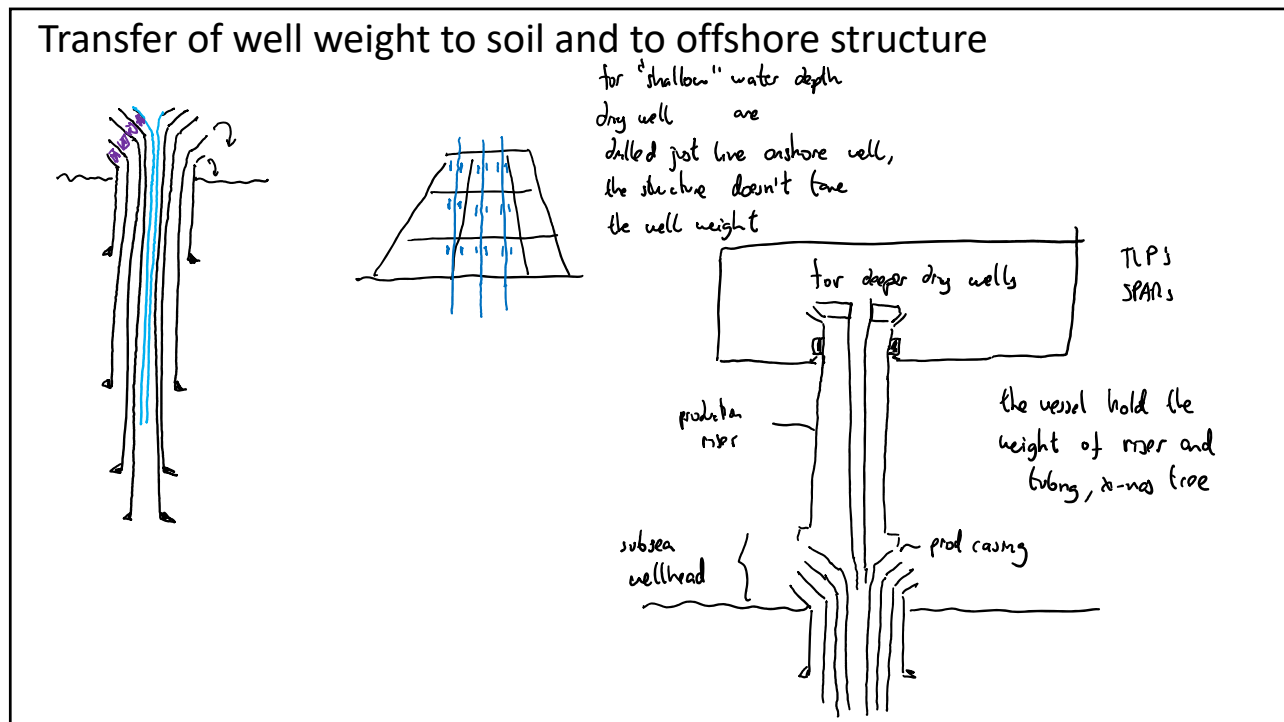 Transfer of well weight to soil and to offshore structure
for "shallow" water depth
dry well are
drilled just like onshore well,
the structure doesn't take
the well weight
for deeper dry wells
TLPS
SPARs
production
riser
the vessel hold the
weight of riser and
tubing, x-mas tree
subsea
wellhead
prod casing